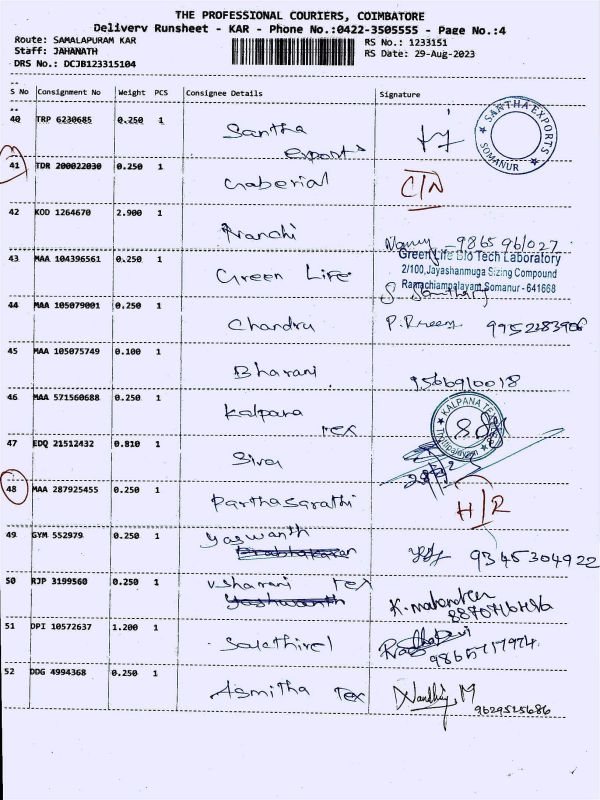 THE PROFESSIONAL COURIERS, COIMBATORE
Delivery Runsheet - KAR - Phone No.:0422-3505555 - Page No.:4
Route: SAMALAPURAM KAR RS No.: 1233151
Staff: JAHANATH RS Date: 29-Aug-2023
DRS No.: DCJB123315104
S No Consignment No Weight PCS Consignee Details Signature
40 TRP 6230685 0.250 1 Santha
exports
SANTHA EXPORTS SOMANUR
41 TDR 200022030 0.250 1 Gaberial C/N
42 KOD 1264670 2.900 1 Ranchi
9865961027
43 MAA 104396561 0.250 1 Green Life Green Life Bio Tech Laboratory
2/100,Jayashanmuga Sizing Compound
Ramachiampalayam,Somanur - 641668
44 MAA 105079001 0.250 1 Chandru 9952283906
45 MAA 105075749 0.100 1 Bharani 9566910018
46 MAA 571560688 0.250 1 Kalpana
Tex
KALPANA TEX
47 EDQ 21512432 0.810 1 Siva
48 MAA 287925455 0.250 1 Parthasarathi H/R
49 GYM 552979 0.250 1 Yaswanth
Prabhakaran
9345304922
50 RJP 3199560 0.250 1 V.Sharani Tex
Yashwanth
K. Mahendran
8870716496
51 DPI 10572637 1.200 1 Salathivel
9865717974
52 DDG 4994368 0.250 1 Asmitha Tex Nandhiny.M
9629525686